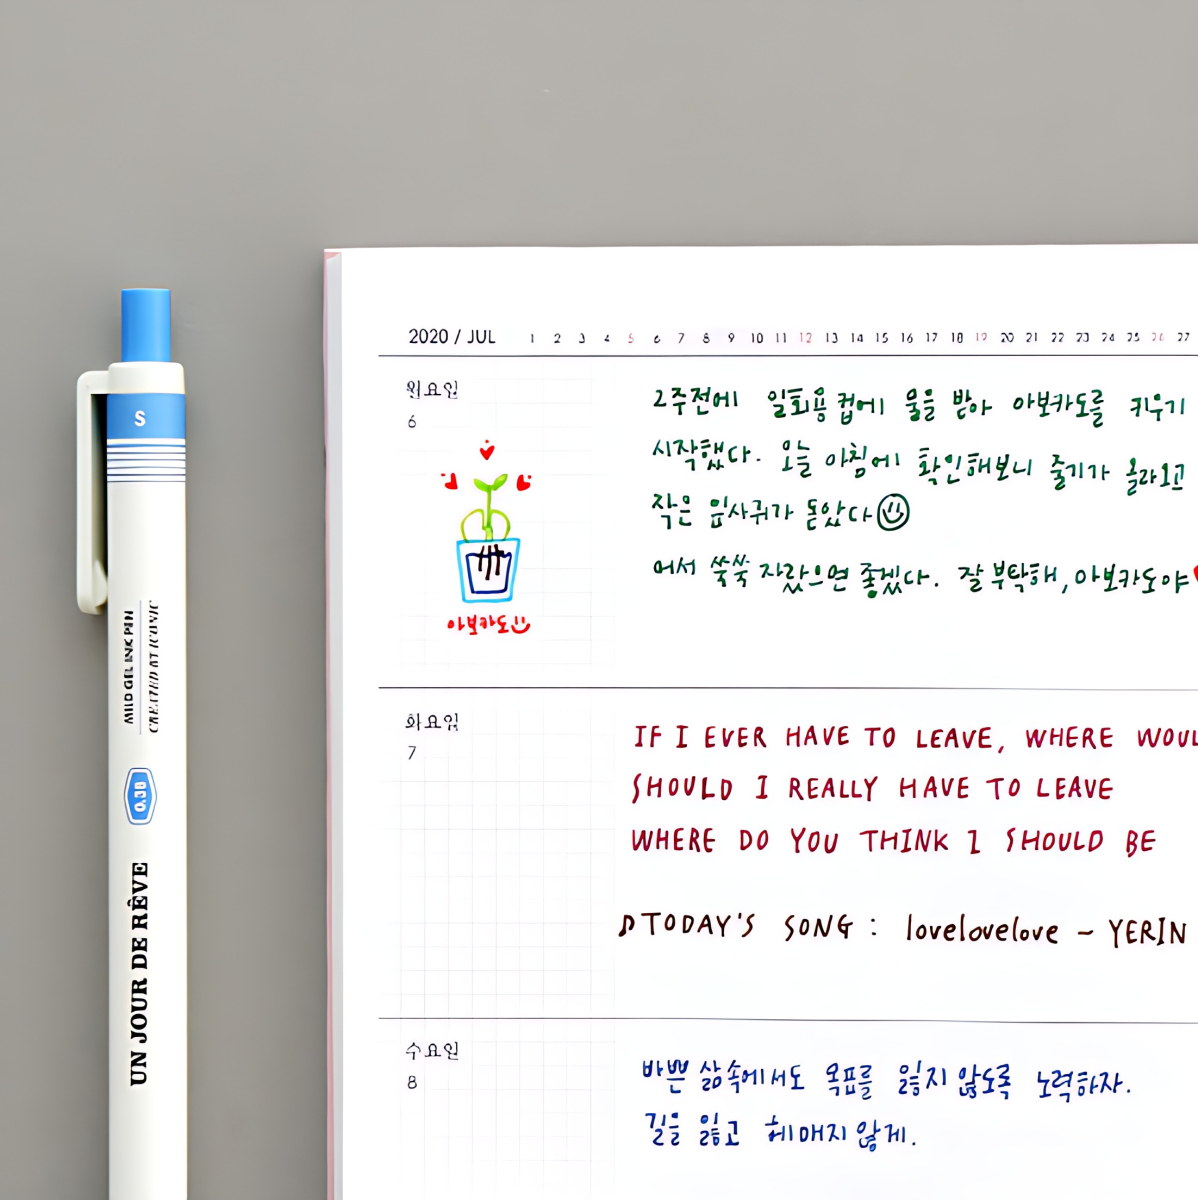 S
MILD GEL INK PEN
CREATED BY ICONIC
0.38
UN JOUR DE RÊVE
2020 / JUL 1 2 3 4 5 6 7 8 9 10 11 12 13 14 15 16 17 18 19 20 21 22 23 24 25 26 27
월요일
6
2주전에 일회용 컵에 물을 받아 아보카도를 키우기
시작했다. 오늘 아침에 확인해보니 줄기가 올라오고
작은 잎사귀가 돋았다
어서 쑥쑥 자랐으면 좋겠다. 잘 부탁해, 아보카도야
아보카도
화요일
7
IF I EVER HAVE TO LEAVE, WHERE WOUL
SHOULD I REALLY HAVE TO LEAVE
WHERE DO YOU THINK I SHOULD BE
♪TODAY'S SONG : lovelovelove - YERIN
수요일
8
바쁜 삶속에서도 목표를 잃지 않도록 노력하자.
길을 잃고 헤매지 않게.